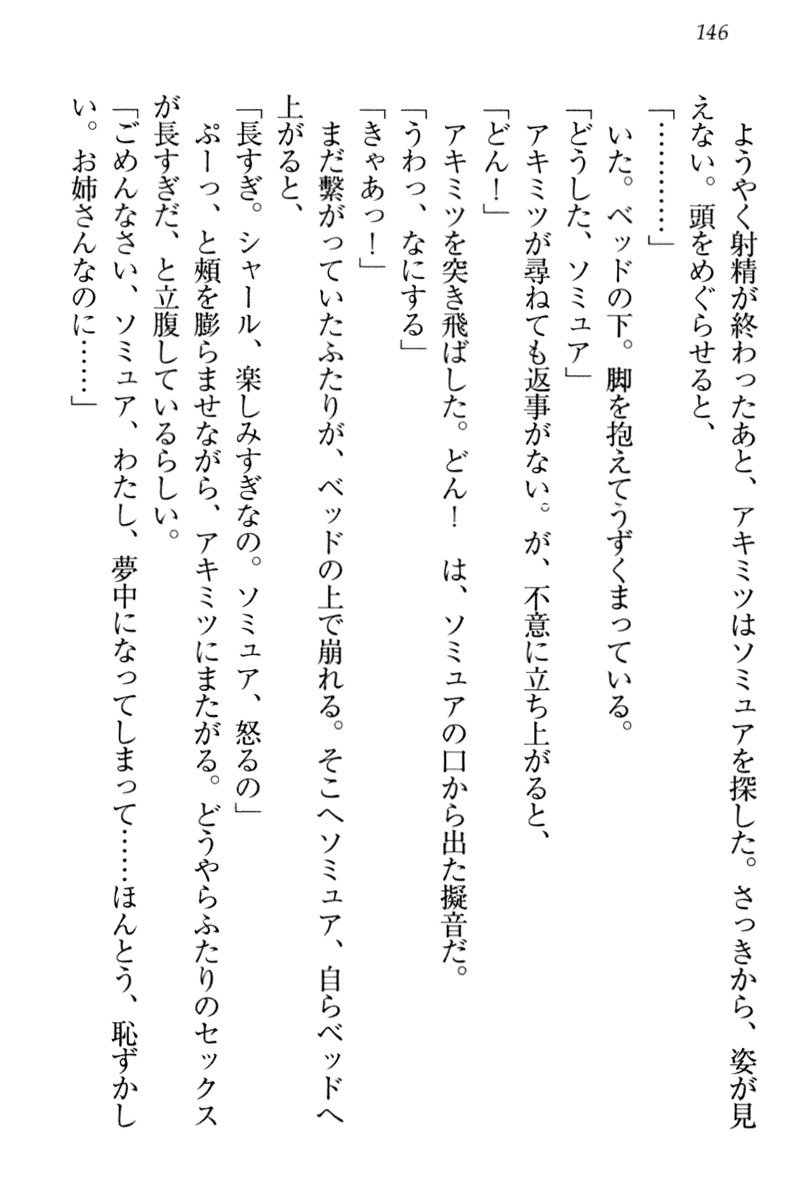 146
ようやく射精が終わったあと、アキミツはソミュアを探した。さっきから、姿が見
えない。頭をめぐらせると、
「…………」
いた。ベッドの下。脚を抱えてうずくまっている。
「どうした、ソミュア」
アキミツが尋ねても返事がない。が、不意に立ち上がると、
「どん！」
アキミツを突き飛ばした。どん！　は、ソミュアの口から出た擬音だ。
「うわっ、なにする」
「きゃあっ！」
まだ繋がっていたふたりが、ベッドの上で崩れる。そこへソミュア、自らベッドへ
上がると、
「長すぎ。シャール、楽しみすぎなの。ソミュア、怒るの」
ぷーっ、と頬を膨らませながら、アキミツにまたがる。どうやらふたりのセックス
が長すぎだ、と立腹しているらしい。
「ごめんなさい、ソミュア、わたし、夢中になってしまって……ほんとう、恥ずかし
い。お姉さんなのに……」